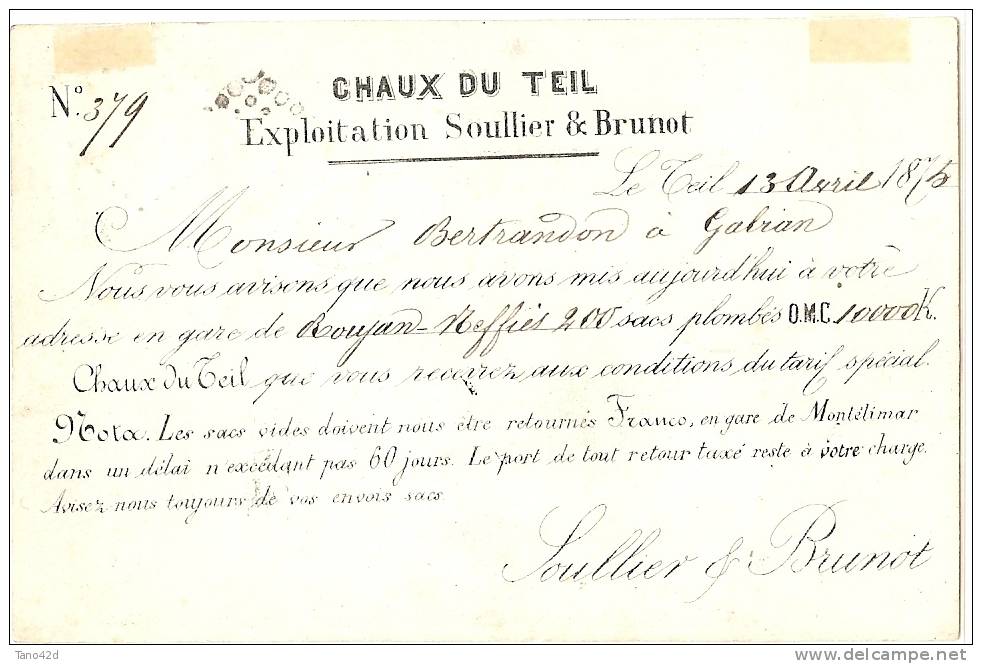 CHAUX DU TEIL
N°. 379
Exploitation Soullier & Brunot
Le Teil 13 Avril 1875
Monsieur Bertrandon à Gabian
Nous vous avisons que nous avons mis aujourd'hui à votre
adresse en gare de Roujan-Neffiès 200 sacs plombés O.M.C. 10000 K.
Chaux du Teil que vous recevrez aux conditions du tarif spécial.
Nota. Les sacs vides doivent nous être retournés Franco, en gare de Montélimar
dans un délai n'excédant pas 60 jours. Le port de tout retour taxé reste à votre charge.
Avisez nous toujours de vos envois sacs
Soullier & Brunot
Tano42d
delcampe.net